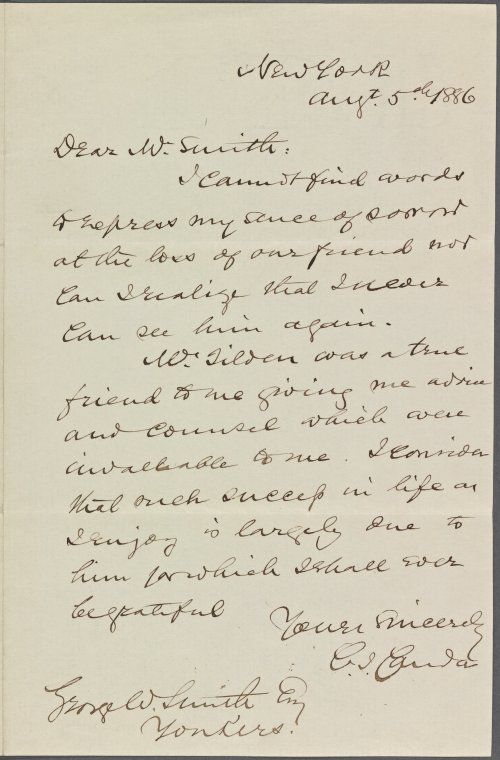 New York
Augt. 5th 1886
Dear Mr. Smith:
I cannot find words
to express my sence of sorrow
at the loss of our friend nor
can I realize that I never
can see him again.
Mr. Tilden was a true
friend to me giving me advice
and counsel which were
invaluable to me. I consider
that such success in life as
I enjoy is largely due to
him for which I shall ever
be grateful
Yours Sincerely
C. J. Canda
George W. Smith Esq
Yonkers.